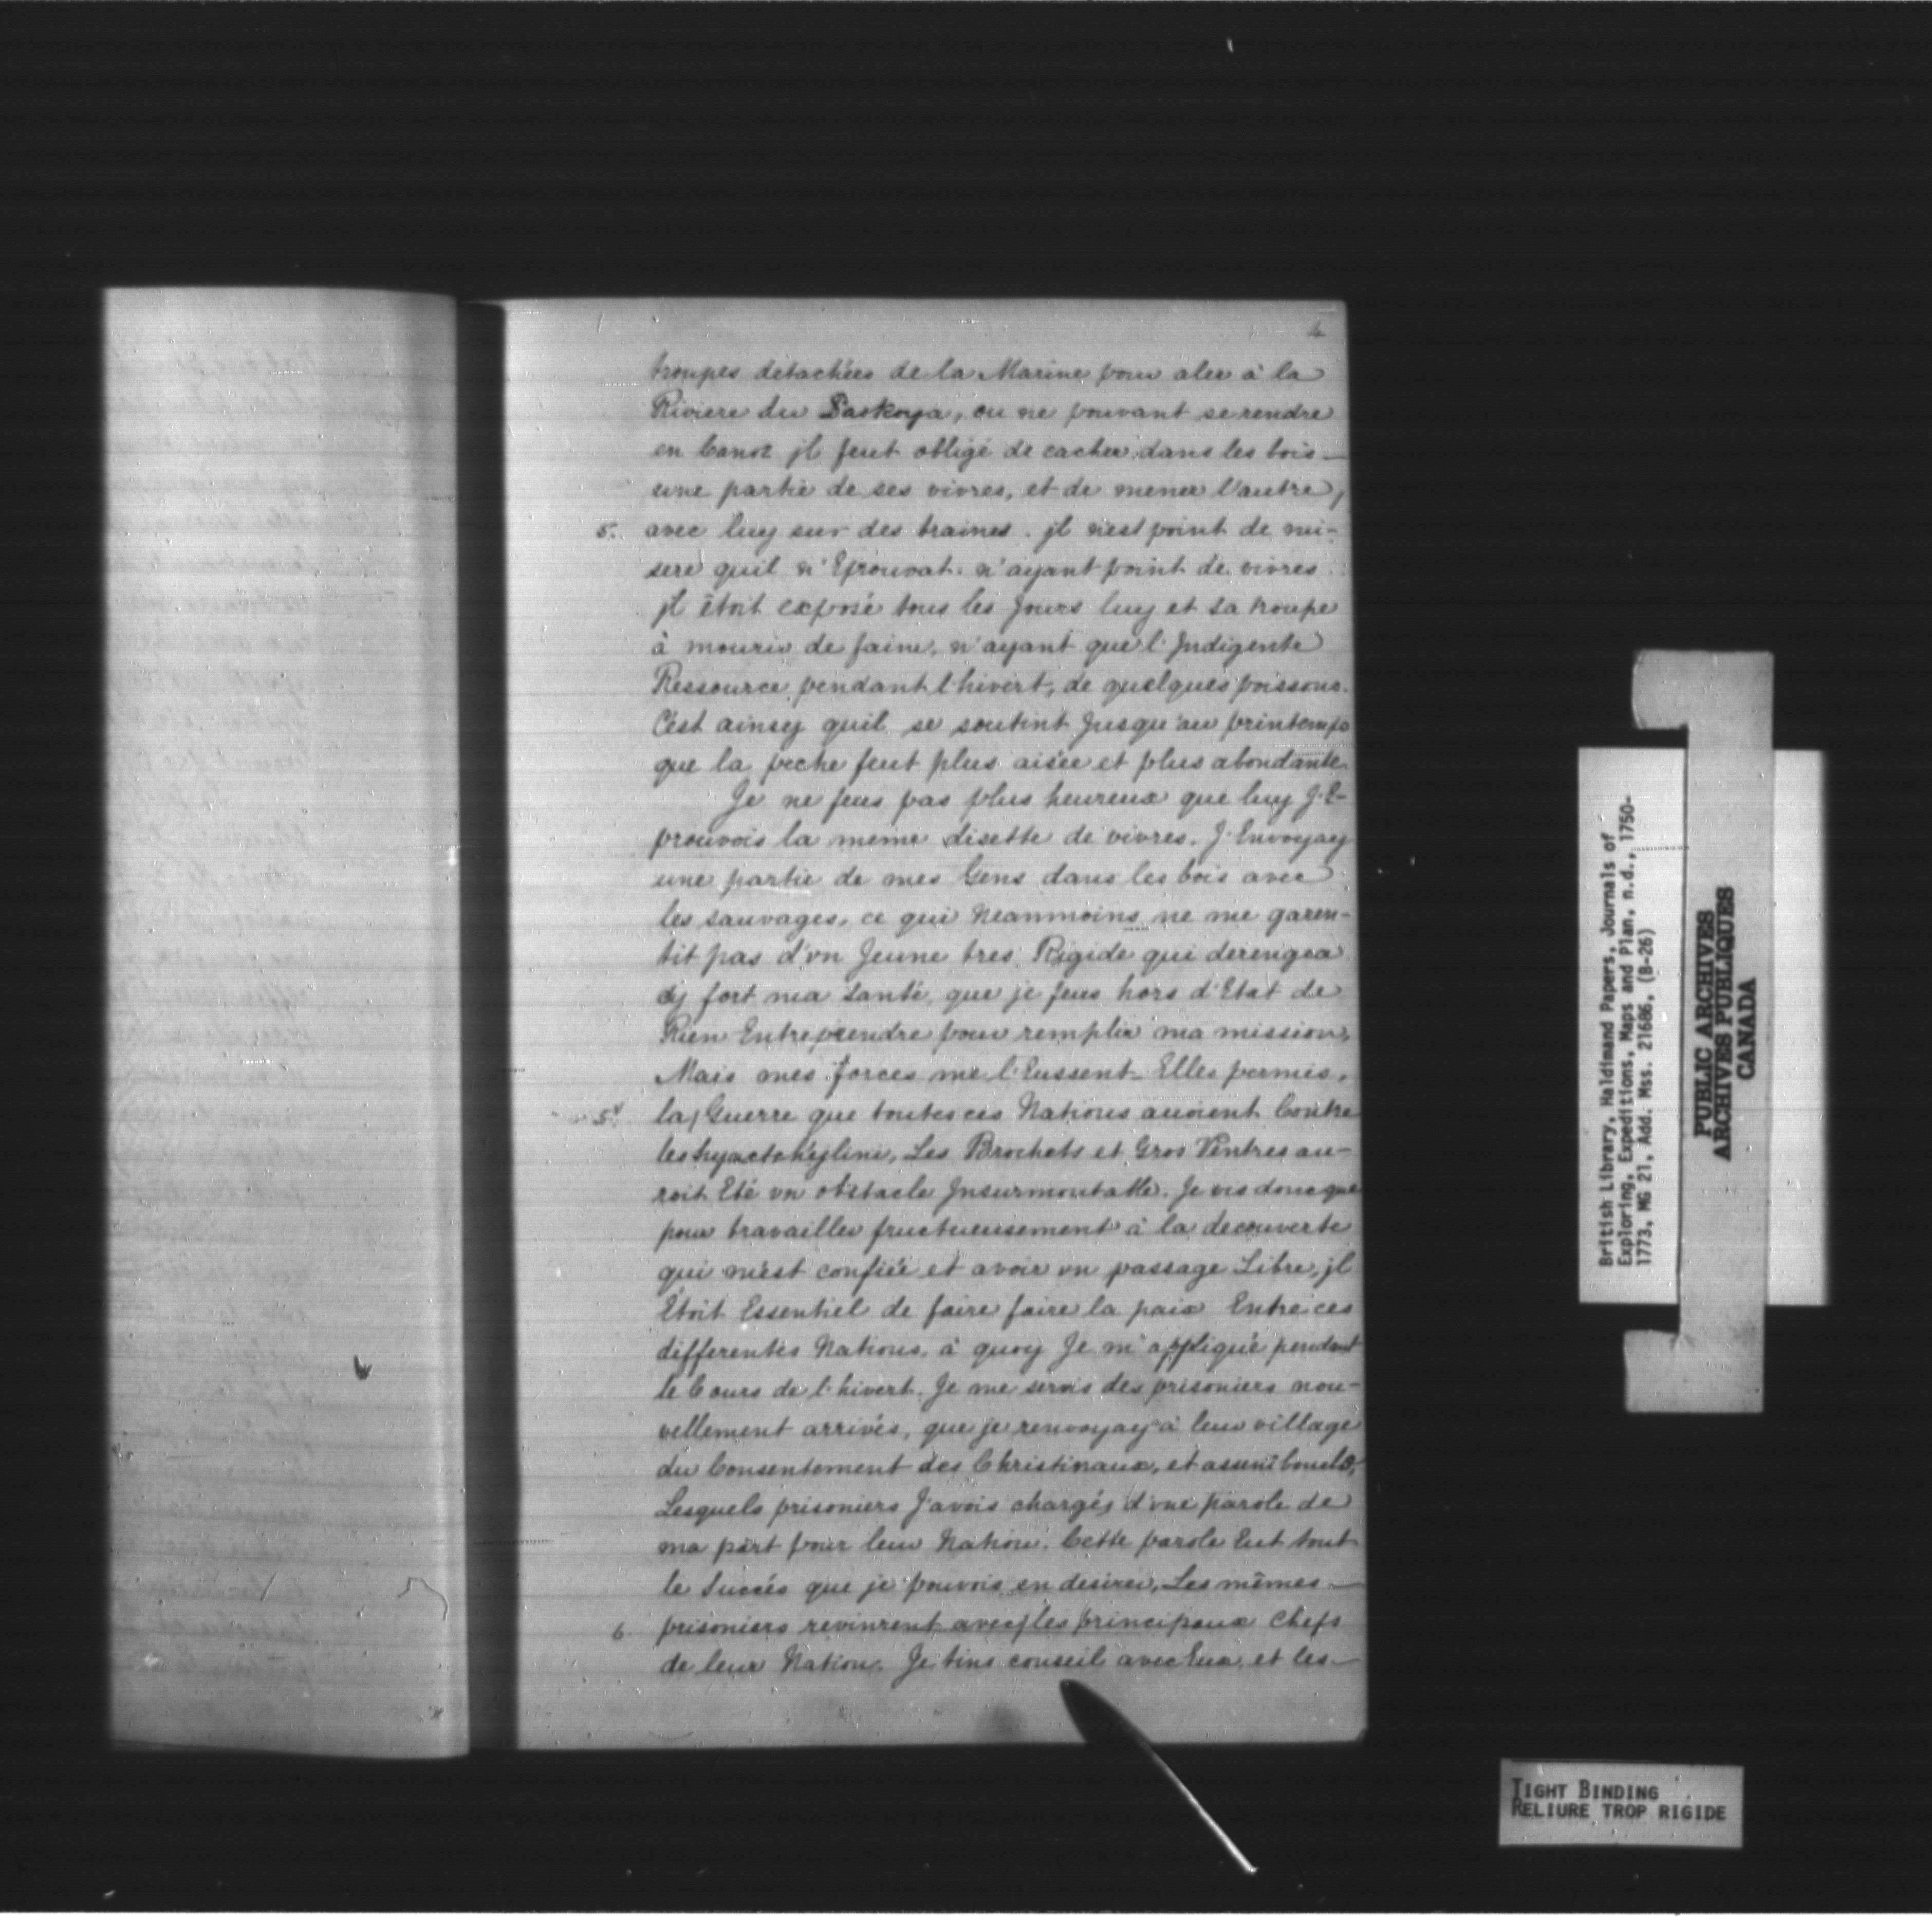 4
troupes détachées de la Marine pour aler à la
Riviere du Paskoya, ou ne pouvant se rendre
en Canot jl feut obligé de cacher dans les bois
une partie de ses vivres, et de mener l'autre,
5. avec luy sur des traines. jl n'est point de mi-
sere quil n'Eprouvat. n'ayant point de vivres
jl êtoit exposé tous les Jours luy et sa troupe
à mourir de faim, n'ayant que l'Indigente
Ressource pendant l'hivert, de quelques poissons.
C'est ainsy quil se soutint Jusqu'au printemps
que la peche feut plus aisée et plus abondante
Je ne feus pas plus heureux que luy J'E-
prouvois la meme disette de vivres. J'Envoyay
une partie de mes Gens dans les bois avec
les sauvages, ce qui Neanmoins ne me garen-
tit pas d'vn Jeune tres Rigide qui derengea
sy fort ma santé, que je feus hors d'Etat de
Rien Entreprendre pour remplir ma mission,
Mais mes forces me l'Eussent Elles permis,
5. la Guerre que toutes ces Nations avoient Contre
les hyactchejlini, Les Brochets et Gros Ventres au-
roit Eté vn obstacle Insurmontable. Je vis donc que
pour travailler fructueusement à la decouverte
qui m'est confiée et avoir vn passage Libre, jl
Etoit Essentiel de faire faire la paix Entre ces
differentes Nations, à quoy Je m'appliqué pendant
le Cours de l'hivert. Je me servis des prisoniers nou-
vellement arrivés, que je renvoyay à leur village
du Consentement des Christinaux, et assinibouels,
Lesquels prisoniers J'avois chargés d'vne parole de
ma part pour leur Nation. Cette parole Eut tout
le Succés que je pouvois en desirer, Les mêmes
6. prisoniers revinrent avec les principaux Chefs
de leur Nation. Je tins conseil avec Eux, et les
British Library, Haldimand Papers, Journals of
Exploring, Expeditions, Maps and Plan, n.d., 1750-
1773, MG 21, Add. Mss. 21686, (B-26)
PUBLIC ARCHIVES
ARCHIVES PUBLIQUES
CANADA
TIGHT BINDING
RELIURE TROP RIGIDE